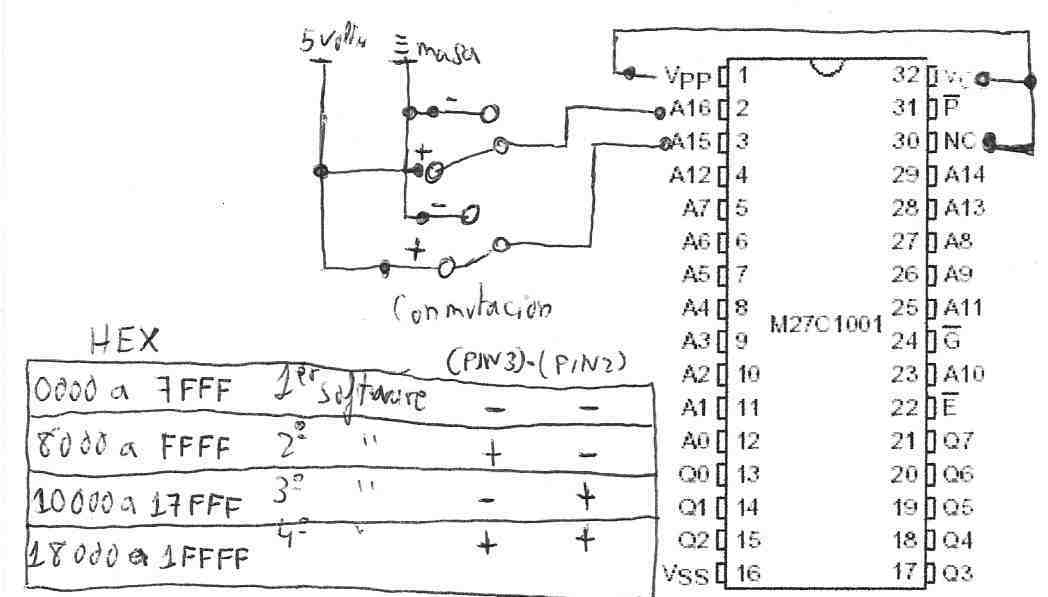 5 volts masa
-
+
-
+
Conmutacion
VPP 1 32
A16 2 31 P̅
A15 3 30 NC
A12 4 29 A14
A7 5 28 A13
A6 6 27 A8
A5 7 26 A9
A4 8 25 A11
M27C1001
A3 9 24 G̅
A2 10 23 A10
A1 11 22 E̅
A0 12 21 Q7
Q0 13 20 Q6
Q1 14 19 Q5
Q2 15 18 Q4
VSS 16 17 Q3
HEX (PIN3)-(PIN2)
0000 a 7FFF 1er software - -
8000 a FFFF 2º " + -
10000 a 17FFF 3º " - +
18000 a 1FFFF 4º " + +